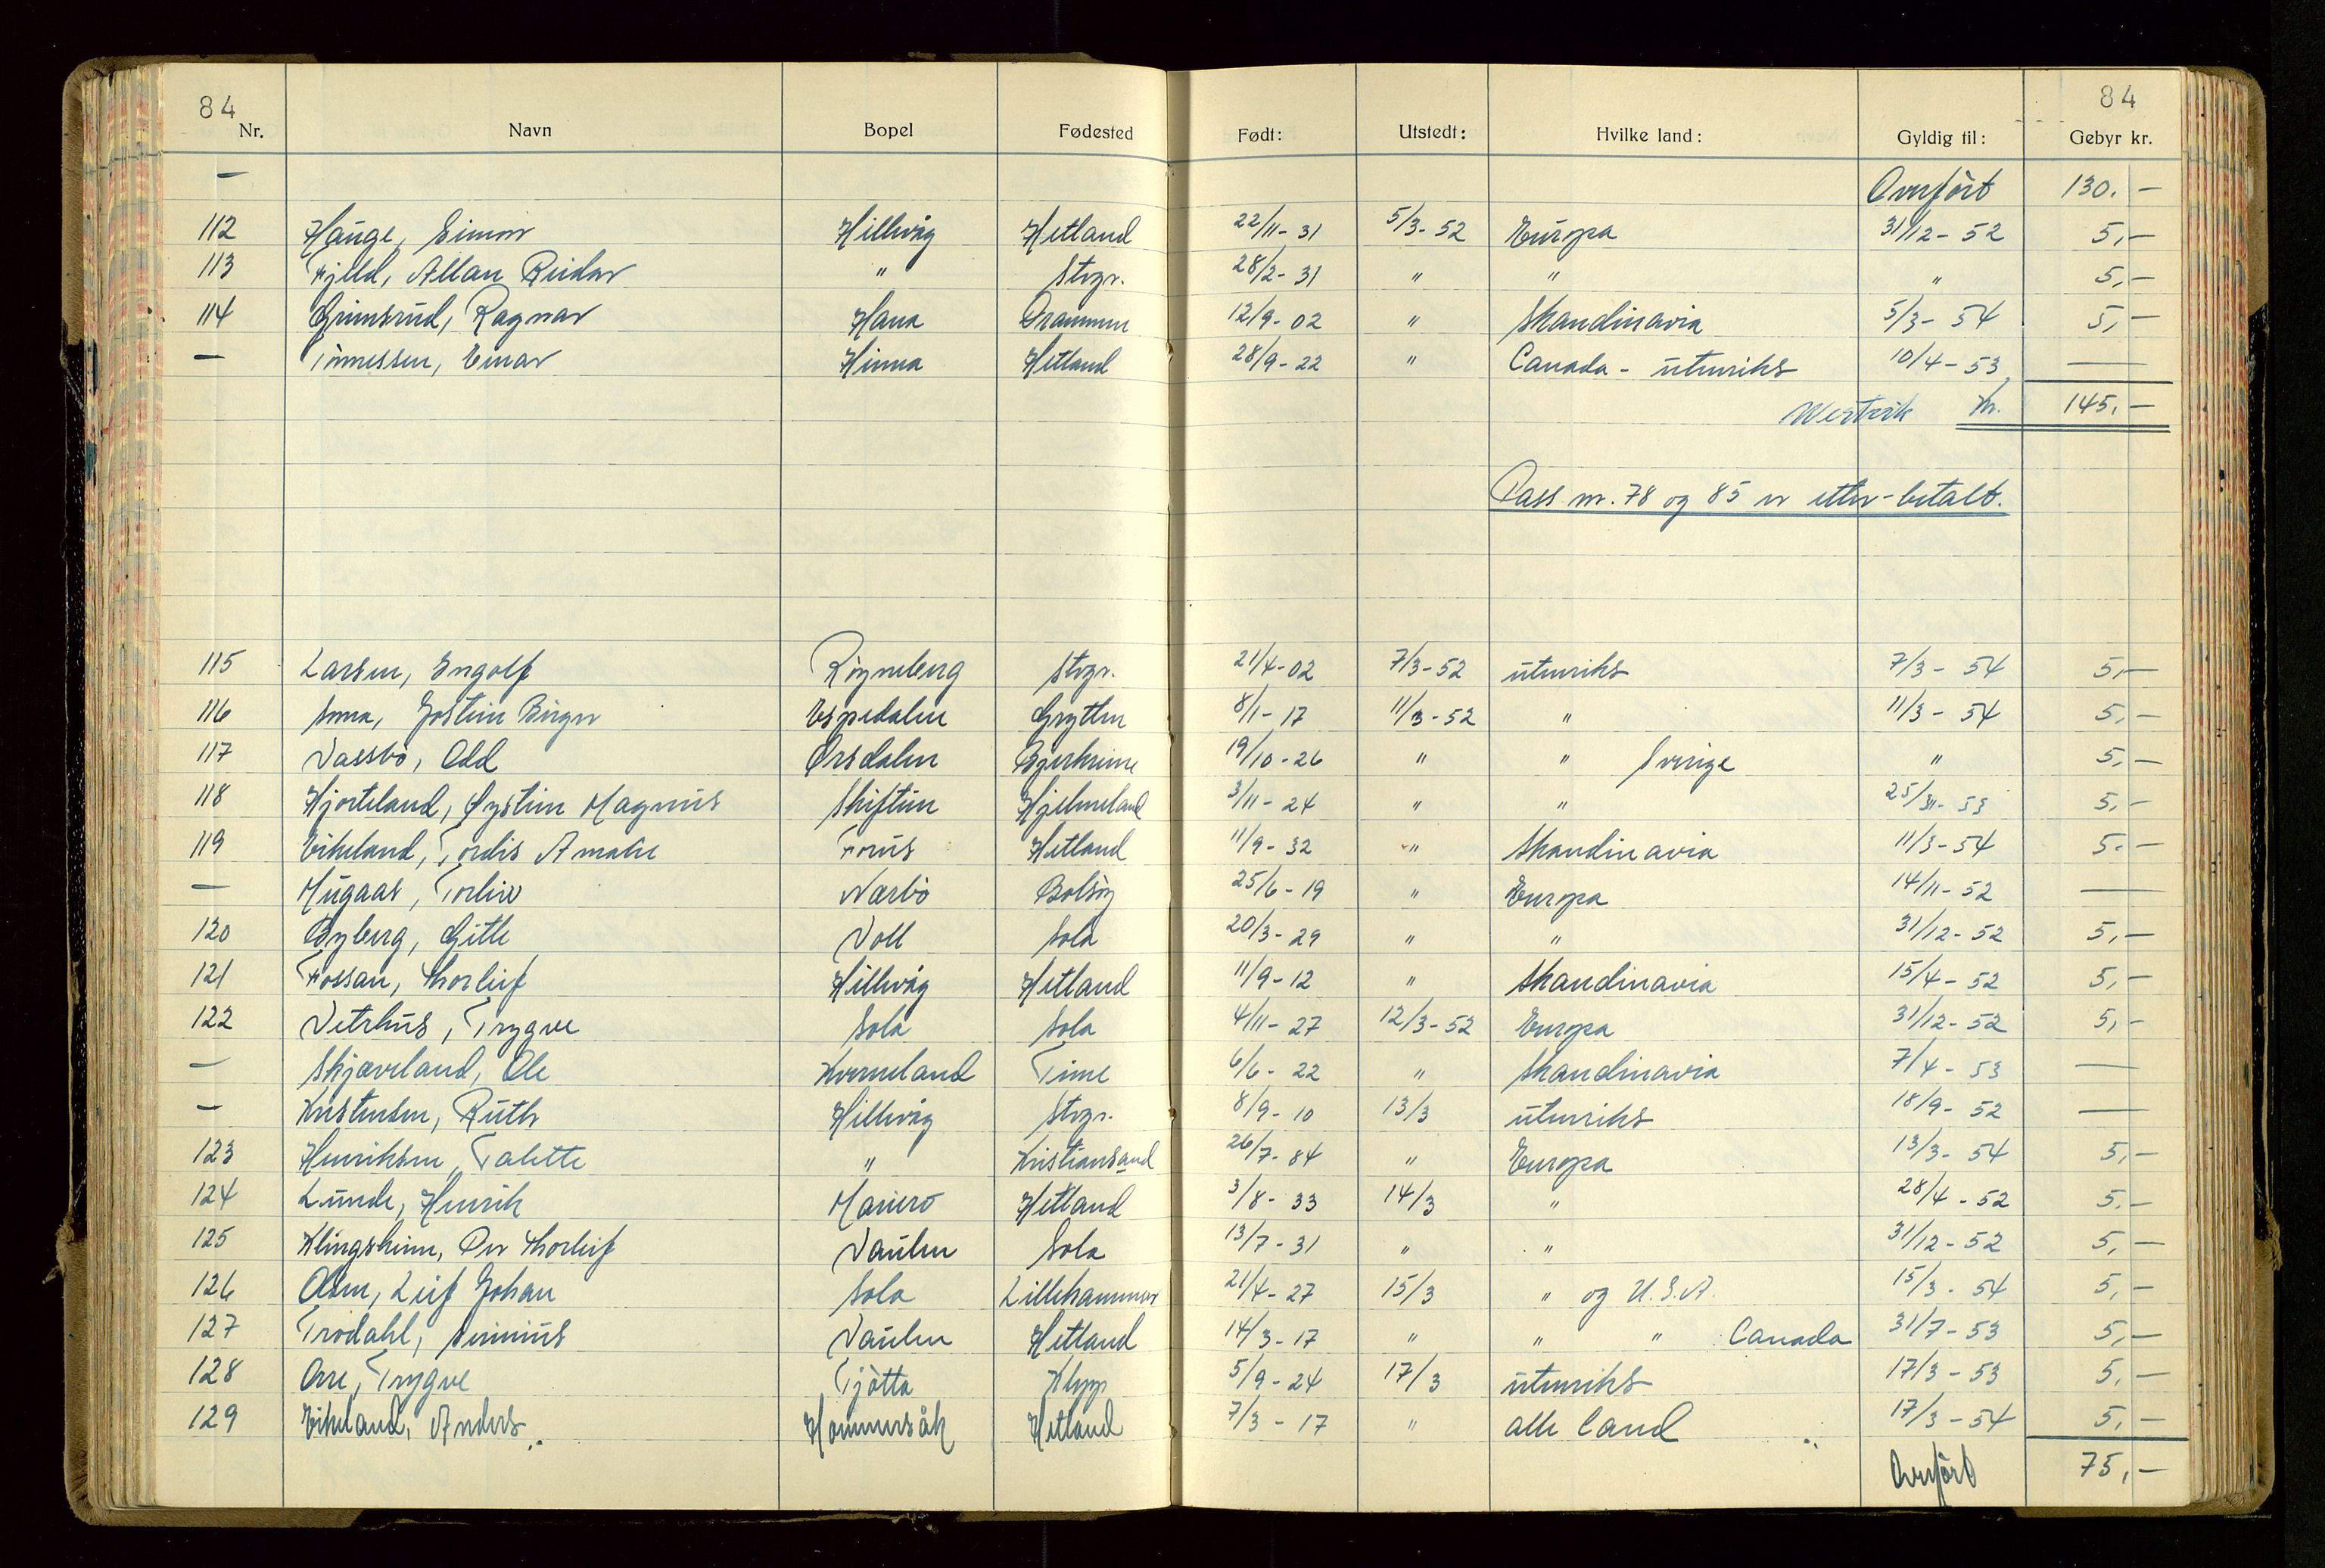 84 84
Nr. Navn Bopel Fødested Født: Utstedt: Hvilke land: Gyldig til: Gebyr kr.
— Overført 130.-
112 Hauge, Simon Hillevåg Hetland 22/11-31 5/3-52 Europa 31/12-52 5,-
113 Fjeld, Allan Reidar " Stvgr. 28/2-31 " " " 5,-
114 Grimsrud, Ragnar Hana Drammen 12/9-02 " Skandinavia 5/3-54 5,-
— Tönnessen, Einar Hinna Hetland 28/9-22 " Canada - utenriks 10/4-53 —
Westvik Kr. 145.-
Pass nr. 78 og 85 er etter-betalt.
115 Larsen, Engolf Røyneberg Stvgr. 21/4-02 7/3-52 utenriks 7/3-54 5,-
116 Soma, Jostein Birger Espedalen Grytten 8/1-17 11/3-52 " 11/3-54 5,-
117 Vassbö, Odd Ørsdalen Bjerkreim 19/10-26 " " Sverige " 5,-
118 Hjorteland, Øystein Magnus Skiftun Hjelmeland 3/11-24 " " 25/11-53 5,-
119 Eikeland, Tordis Amalie Forus Hetland 11/9-32 " Skandinavia 11/3-54 5.-
— Mugaas, Torleiv Nærbö Bolsöy 25/6-19 " Europa 14/11-52 —
120 Byberg, Gitle Voll Sola 20/3-29 " " 31/12-52 5,-
121 Fossan, Thorleif Hillevåg Hetland 11/9-12 " Skandinavia 15/4-52 5,-
122 Vetrhus, Trygve Sola Sola 4/11-27 12/3-52 Europa 31/12-52 5,-
— Skjæveland, Ole Kverneland Time 6/6-22 " Skandinavia 7/4-53 —
— Kristensen, Ruth Hillevåg Stvgr. 8/9-10 13/3 utenriks 18/9-52 —
123 Henriksen, Talette " Kristiansand 26/7-84 " Europa 13/3-54 5,-
124 Lunde, Henrik Mariero Hetland 3/8-33 14/3 " 28/4-52 5.-
125 Klingsheim, Per Thorleif Vaulen Sola 13/7-31 " " 31/12-52 5,-
126 Olsen, Leif Johan Sola Lillehammer 21/4-27 15/3 " og U.S.A. 15/3-54 5,-
127 Trodahl, Severinus Vaulen Hetland 14/3-17 " " " Canada 31/7-53 5,-
128 Orre, Trygve Tjötta Klepp 5/9-24 17/3 utenriks 17/3-53 5.-
129 Eikeland, Anders Hommersåk Hetland 7/3-17 " alle land 17/3-54 5,-
Overført 75,-